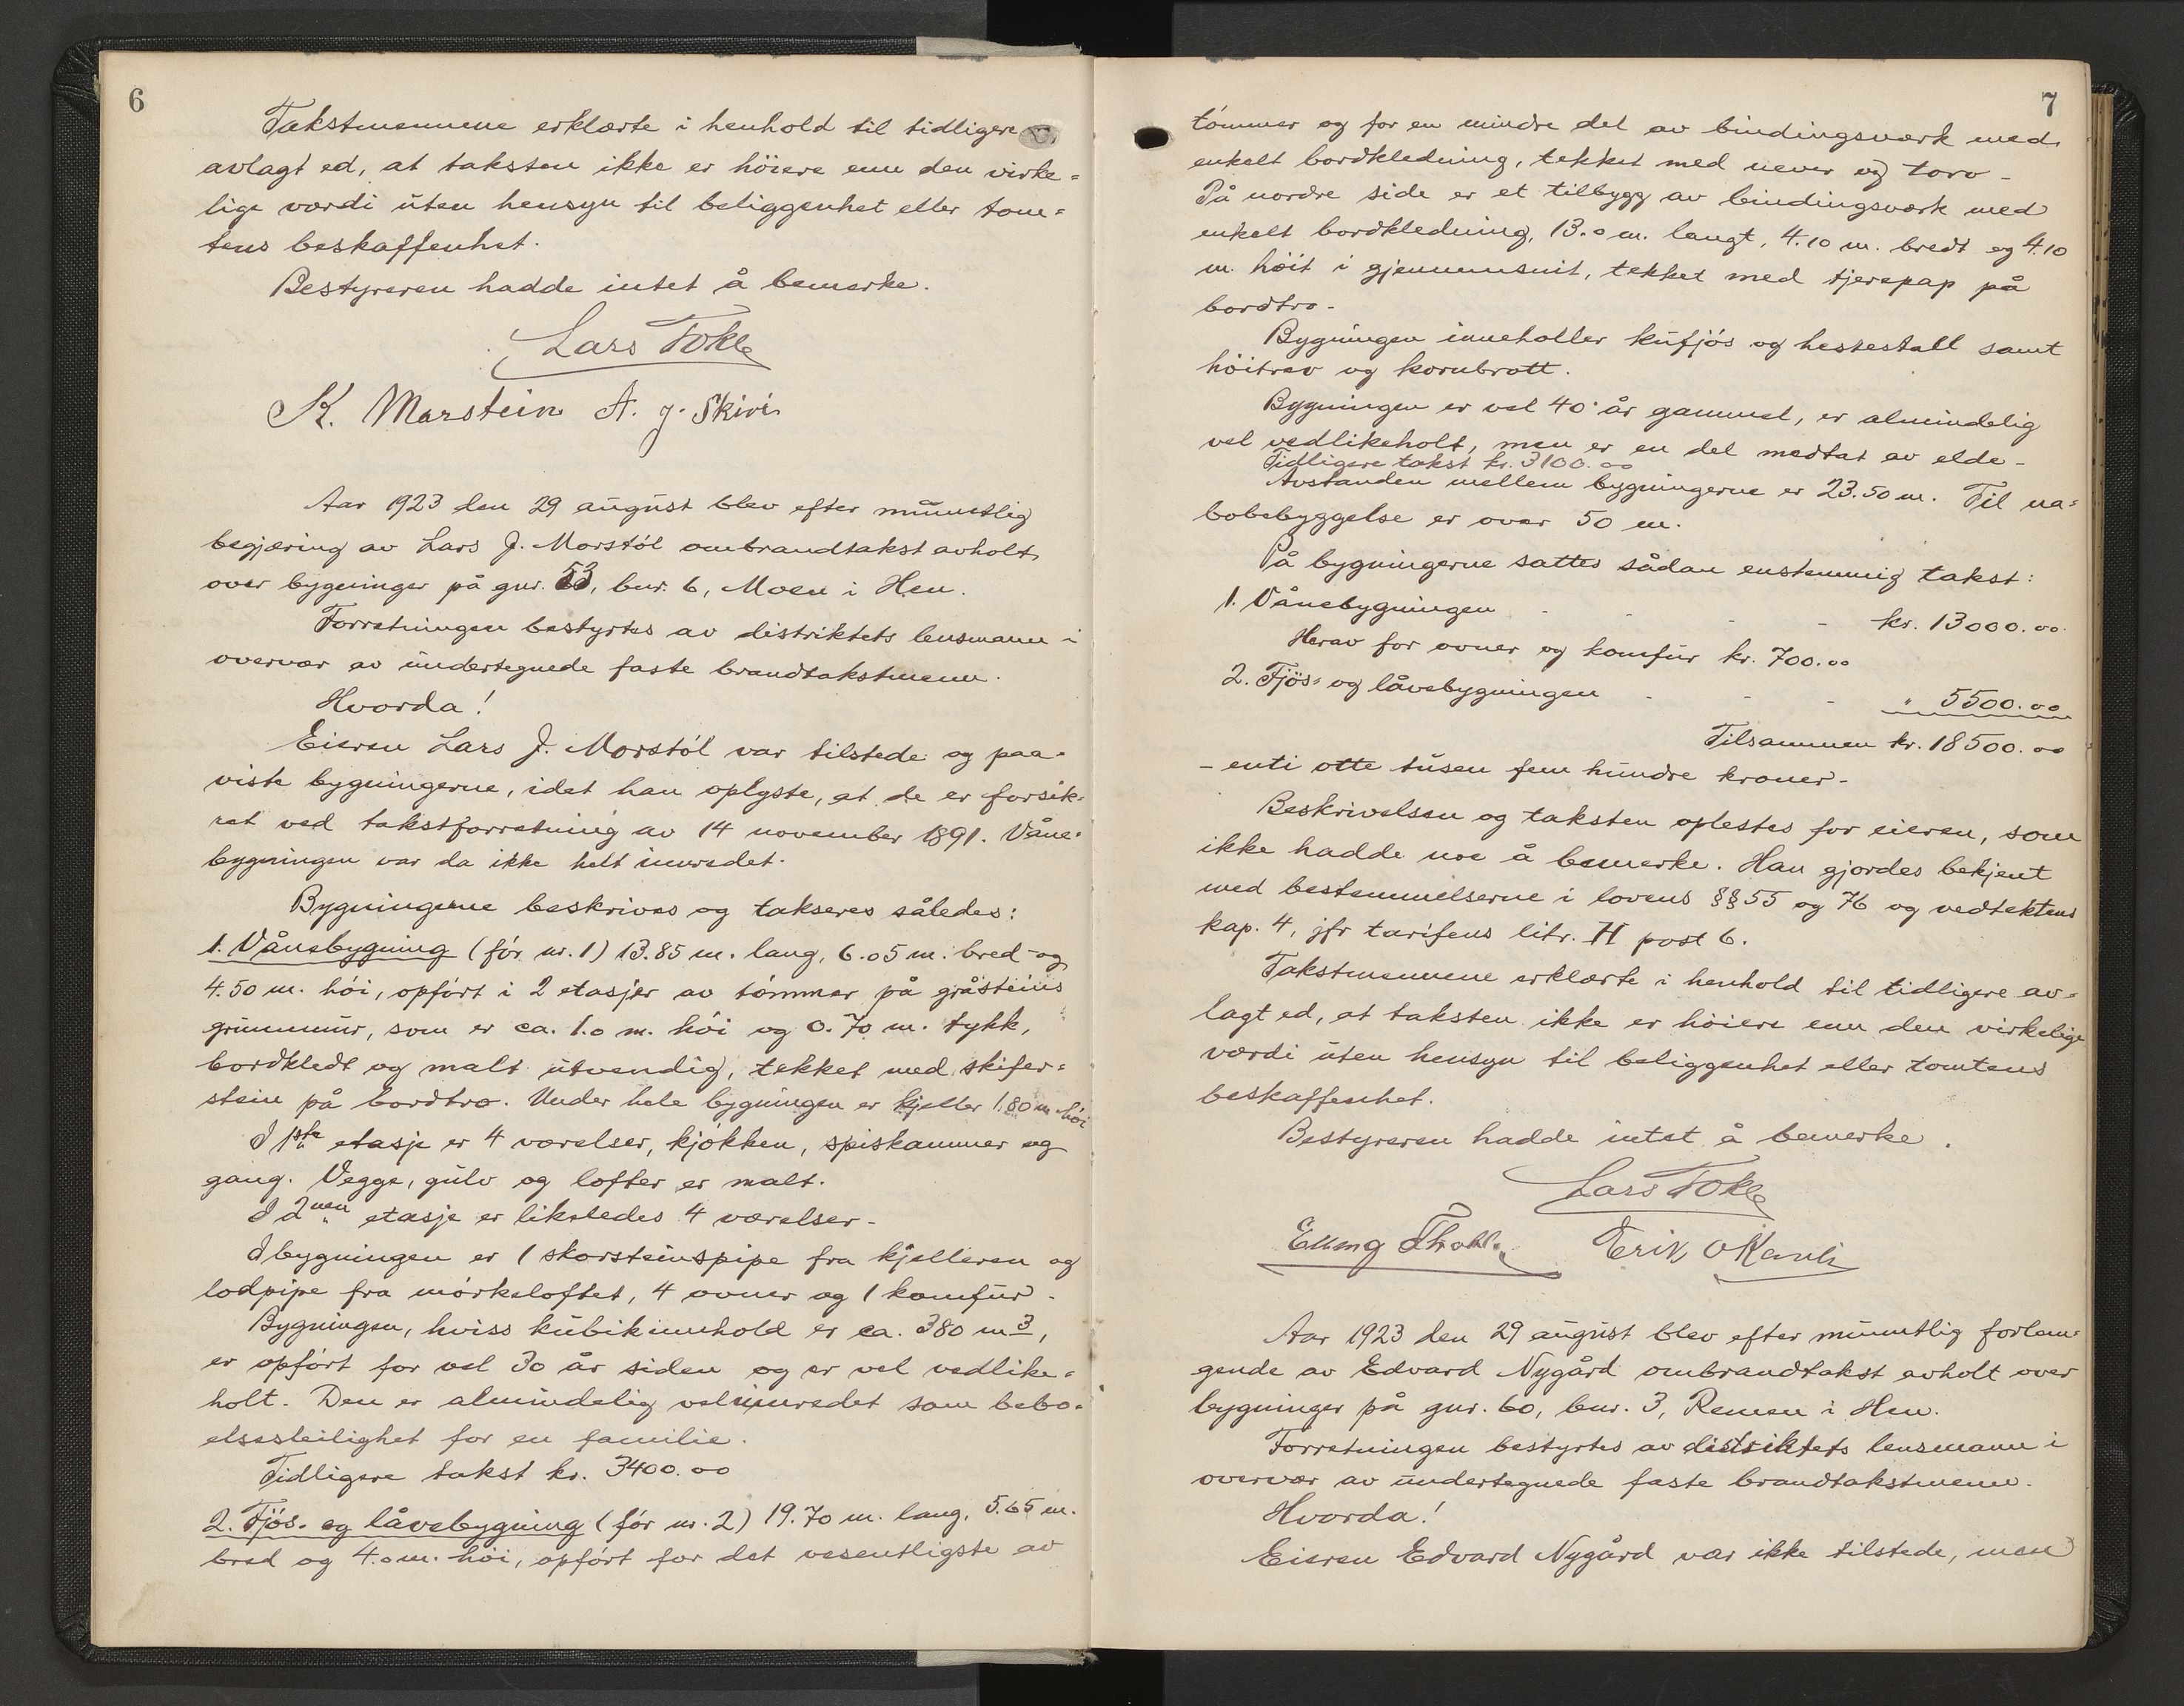 6
Takstmennene erklærte i henhold til tidligere
avlagt ed, at taksten ikke er höiere enn den virke=
lige værdi uten hensyn til beliggenhet eller tom=
tens beskaffenhet.
Bestyreren hadde intet å bemerke.
Lars Tokle
K. Marstein A. J. Skiri
Aar 1923 den 29 august blev efter muntlig
begjæring av Lars J. Morstöl ombrandtakst avholt
over bygninger på gnr. 53, bnr. 6, Moen i Hen.
Forretningen bestyrtes av distriktets lensmann i
overvær av undertegnede faste brandtakstmenn.
Hvorda!
Eieren Lars J. Morstöl var tilstede og paa=
viste bygningerne, idet han oplyste, at de er forsik=
ret ved takstforretning av 14 november 1891. Våne=
bygningen var da ikke helt innredet.
Bygningerne beskrives og takseres således:
1. Vånebygning (för nr. 1) 13.85 m. lang, 6.05 m. bred og
4.50 m. höi, opfört i 2 etasjer av tömmer på gråsteins
grunnmur, som er ca. 1.0 m. höi og 0.70 m. tykk,
bordkledt og malt utvendig, tekket med skifer=
stein på bordtro. Under hele bygningen er kjeller 1.80 m höi
I 1ste etasje er 4 værelser, kjökken, spiskammer og
gang. Vegge, gulv og lofter er malt.
I 2nen etasje er likeledes 4 værelser-
I bygningen er 1 skorsteinspipe fra kjelleren og
lodpipe fra mörkeloftet, 4 ovner og 1 komfur-
Bygningen, hviss kubikinnhold er ca. 380 m3,
er opfört for vel 30 år siden og er vel vedlike=
holt. Den er almindelig vel innredet som bebo=
elsesleilighet for en familie.
Tidligere takst kr. 3400.00
2. Fjös- og låvebygning (för nr. 2) 19.70 m. lang, 5.65 m.
bred og 4.0 m. höi, opfört for det vesentligste av
7
tömmer og for en mindre del av bindingsværk med
enkelt bordkledning, tekket med never og torv-
På nordre side er et tilbygg av bindingsværk med
enkelt bordkledning, 13.0 m. langt, 4.10 m. bredt og 4.10
m. höit i gjennemsnit, tekket med tjerepap på
bordtro-
Bygningen inneholler kufjös og hestestall samt
höitrev og kornbrott.
Bygningen er vel 40 år gammel, er almindelig
vel vedlikeholt, men er en del medtat av elde-
Tidligere takst kr. 3100.00
Avstanden mellem bygningerne er 23.50 m. Til na=
bobebyggelse er over 50 m.
På bygningerne sattes sådan enstemmig takst:
1. Vånebygningen - - - kr. 13000.00
Herav for ovner og komfur kr. 700.00
2. Fjös= og låvebygningen - - - " 5500.00
Tilsammen kr. 18500.00
- enti otte tusen fem hundre kroner-
Beskrivelsen og taksten oplestes for eieren, som
ikke hadde noe å bemerke. Han gjordes bekjent
med bestemmelserne i lovens §§ 55 og 76 og vedtektens
kap. 4, jfr tarifens litr. H post 6.
Takstmennene erklærte i henhold til tidligere av=
lagt ed, at taksten ikke er höiere enn den virkelige
værdi uten hensyn til beliggenhet eller tomtens
beskaffenhet.
Bestyreren hadde intet å bemerke.
Lars Tokle
Erik O
Aar 1923 den 29 august blev efter muntlig forlan=
gende av Edvard Nygård ombrandtakst avholt over
bygninger på gnr. 60, bnr. 3, Remen i Hen.
Forretningen bestyrtes av distriktets lensmann i
overvær av undertegnede faste brandtakstmenn.
Hvorda!
Eieren Edvard Nygård var ikke tilstede, men